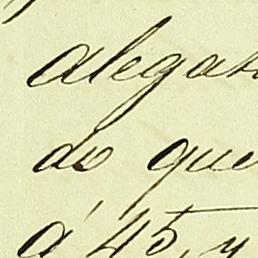 alegan
do que
á 45, y